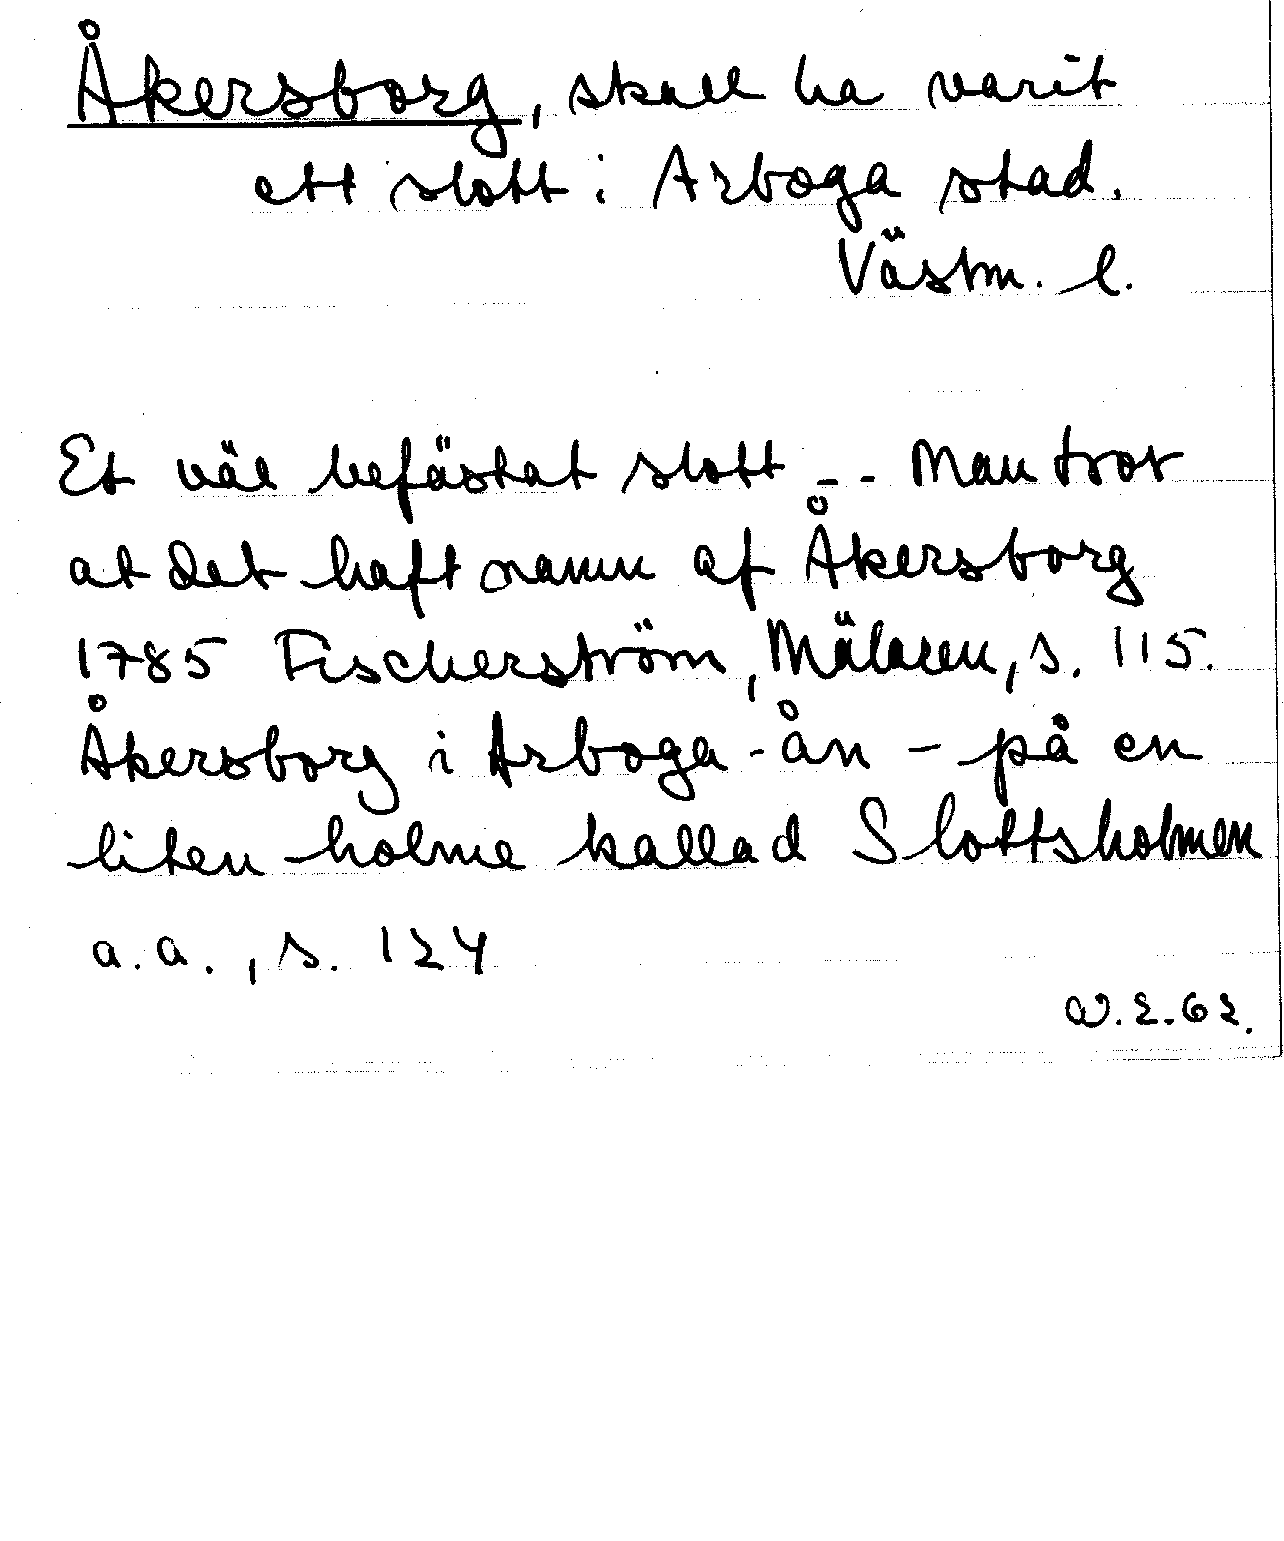 Åkersborg, skall ha varit
ett slott i Arboga stad.
Västm. l.
Et väl befästat slott -- Man tror
at det haft namn af Åkersborg
1785 Fischerström, Mälaren, s. 115.
Åkersborg i Arboga-ån - på en
liten holme kallad Slottsholmen
a.a., s. 124
W.E-62.